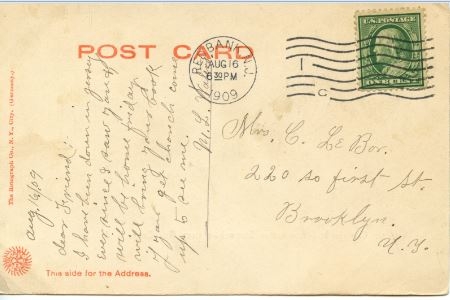 POST CARD
RED BANK, N.J.
AUG 16
6 30 PM
1909
1
C
U.S. POSTAGE
ONE CENT
Aug 16/09
dear Friend:
I have been down in jersey
ever since I saw you
will be home friday
will bring your book
if you get chance come
up to see me.
M. L.
Mrs. C. Le Bor.
220 so first st.
Brooklyn.
N.Y.
This side for the Address.
The Rotograph Co., N. Y. City. (Germany.)